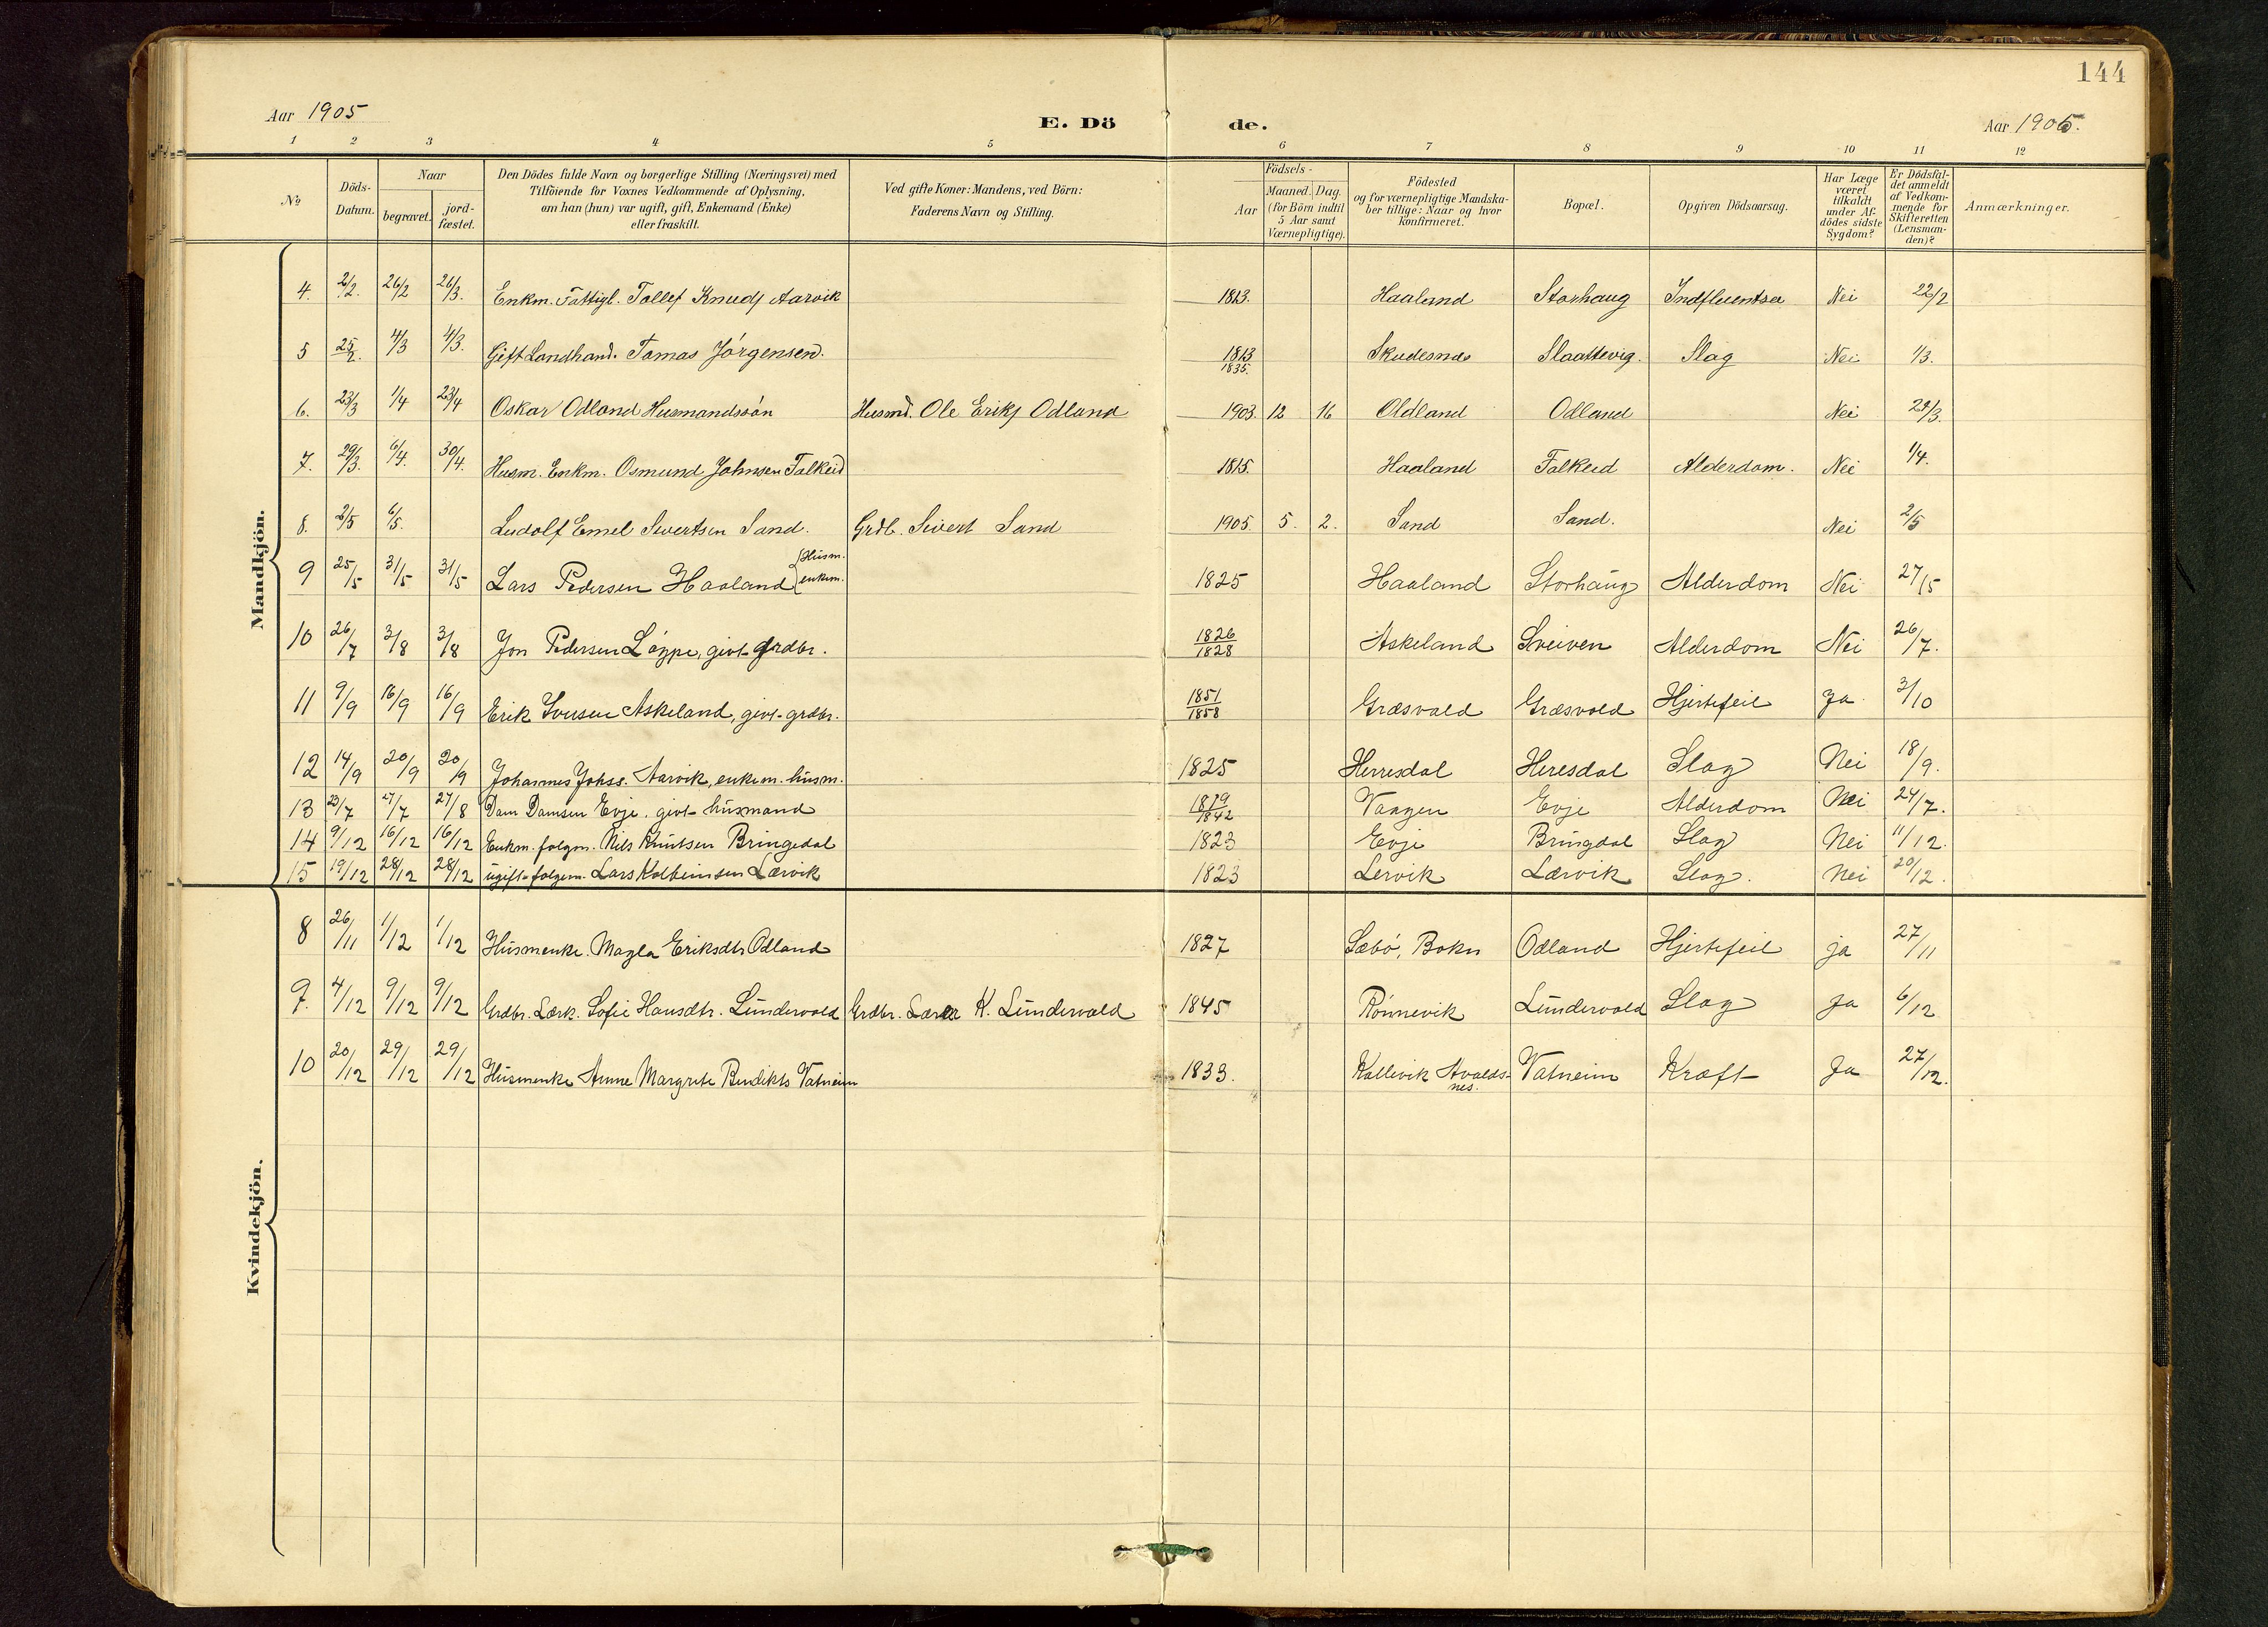 144
Aar 1905
E. Dö
de.
Aar 1905.
1 2 3 4 5 6 7 8 9 10 11 12
No
Döds-Datum.
Naar
begravet.
jord-fæstet.
Den Dödes fulde Navn og borgerlige Stilling (Næringsvei) med
Tilföiende for Voxnes Vedkommende af Oplysning,
om han (hun) var ugift, gift, Enkemand (Enke)
eller fraskilt.
Ved gifte Koner: Mandens, ved Börn:
Faderens Navn og Stilling.
Födsels-
Aar
Maaned. Dag.
(for Börn indtil
5 Aar samt
Værnepligtige).
Födested
og for værnepligtige Mandska-
ber tillige: Naar og hvor
konfirmeret.
Bopæl.
Opgiven Dödsaarsag.
Har Læge
været
tilkaldt
under Af-
dödes sidste
Sygdom?
Er Dödsfal-
det anmeldt
af Vedkom-
mende for
Skifteretten
(Lensman-
den)?
Anmærkninger.
Mandkjön.
4. 2/2. 26/2 26/3. Enkm. Fattigl. Tollef Knuds Aarvik 1813. Haaland Storhaug Indfluentsa Nei 22/2
5 25/2. 4/3 4/3. Gift Landhand. Tomas Jörgensen. 1813 1835. Skudesnes Slaattevig. Slag Nei 1/3.
6. 23/3 1/4 23/4 Oskar Odland Husmandssön Husmd. Ole Eriks Odland 1903 12 16 Oldland Odland Nei 29/3.
7. 29/3. 6/4. 30/4. Husm. Enkm. Osmund Johnsen Falkeid 1815. Haaland Falkeid Alderdom. Nei 1/4.
8. 2/5 6/5. Ludolf Emel Sivertsen Sand. Grdb. Sivert Sand 1905. 5. 2. Sand Sand. Nei 2/5
9 25/5 31/5 31/5 Lars Pedersen Haaland (Husm. enkem. 1825 Haaland Storhaug Alderdom Nei 27/5
10 26/7 3/8 3/8 Jon Pedersen Löppe, givt grdbr. 1826 1828 Askeland Sveiven Alderdom Nei 26/7.
11 9/9 16/9 16/9 Erik Iversen Askeland, givt-grdbr. 1851 1858 Græsvald Græsvold Hjertefeil Ja 3/10
12 14/9 20/9 20/9 Johannes Johss. Aarvik, enkem. husm. 1825 Herresdal Heresdal Slag Nei 18/9.
13 23/7 27/7 27/8 Dam Damsen Evje. givt husmand 1819 1842 Vaagen Evje Alderdom Nei 24/7.
14 9/12 16/12 16/12 Enkm. folgm. Nils Knutsen Bringedal 1823 Evje Bringdal Slag Nei 11/12.
15 19/12 28/12 28/12 ugift folgem. Lars Kolbeinsen Lærvik 1823 Lervik Lærvik Slag. Nei 20/12.
Kvindekjön.
8 26/11 1/12 1/12 Husmenke. Magla Eriksdtr Odland 1827 Sæbö, Bokn Odland Hjertefeil ja 27/11
9. 4/12 9/12 9/12 Grdbr. Lærk. Sofie Hansdtr. Lundervold Grdbr. Lærer K. Lundervold 1845 Rönnevik Lundervold Slag Ja 6/12
10 20/12 29/12 29/12 Husmenke Anne Margrete Bendikts Vatneim 1833. Kallevik Avalds-nes. Vatneim Kræft Ja 27/12.